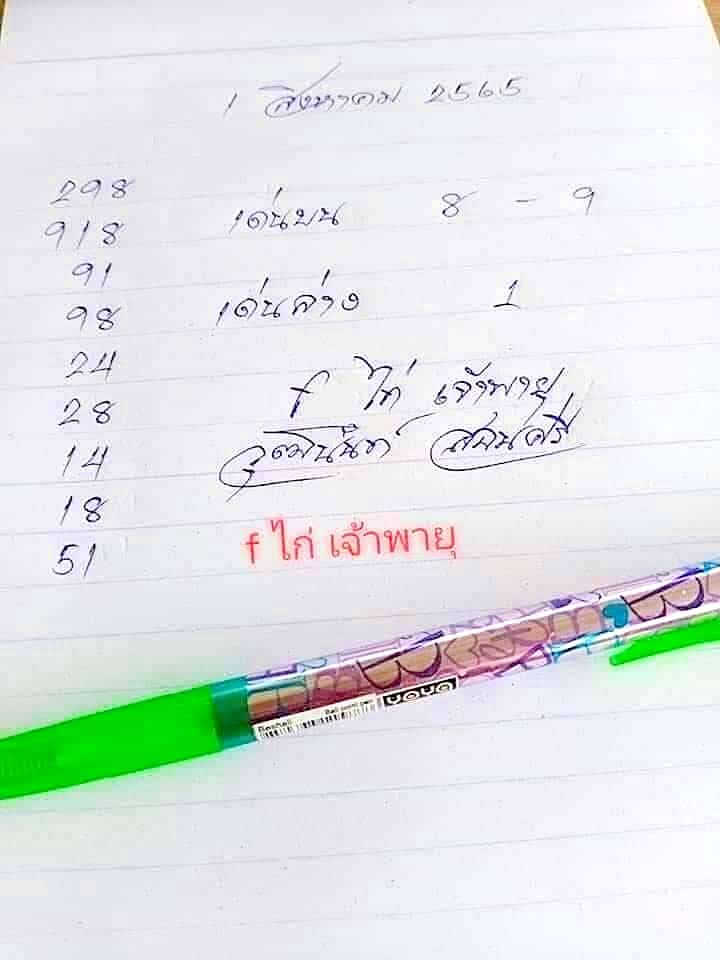 1 สิงหาคม 2565
298
918
เด่นบน 8 - 9
91
98
เด่นล่าง 1
24
28
f ไก่ เจ้าพายุ
14
วุฒินันท์ สอนศรี
18
51
f ไก่ เจ้าพายุ
Ball point pen
YOYA